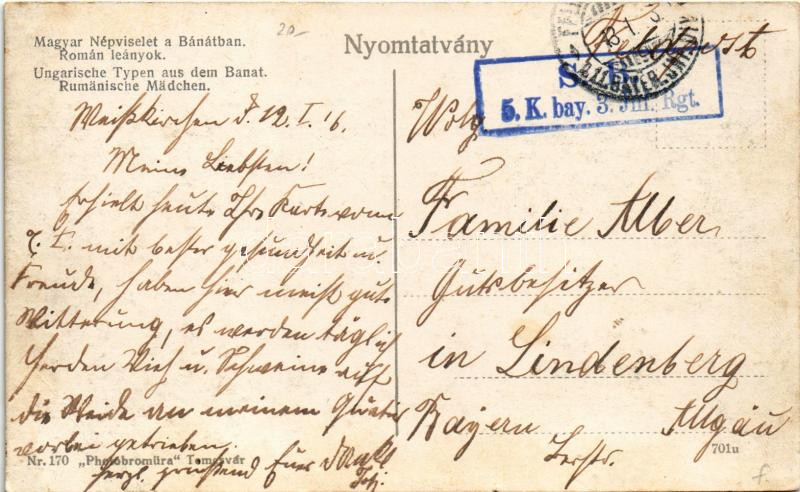 20-
Magyar Népviselet a Bánátban.
Román leányok.
Ungarische Typen aus dem Banat.
Rumänische Mädchen.
Nyomtatvány
Feldpost
S. B.
5. K. bay. 3. Inf. Rgt.
Weißkirchen d. 12. I. 16.
Meine Liebsten!
Erhielt heute Ihre Karte vom
7. I. mit bester Gesundheit u.
Freude, haben hier meist gute
Witterung, es werden täglich
Herden Vieh u. Schweine auf
die Weide an meinem Quartier
vorbei getrieben.
herzl. grüßend Euer
Familie Alber
Gutsbesitzer
in Lindenberg
Bayern Allgäu
Nr. 170 „Photobromüra" Temesvár
701u